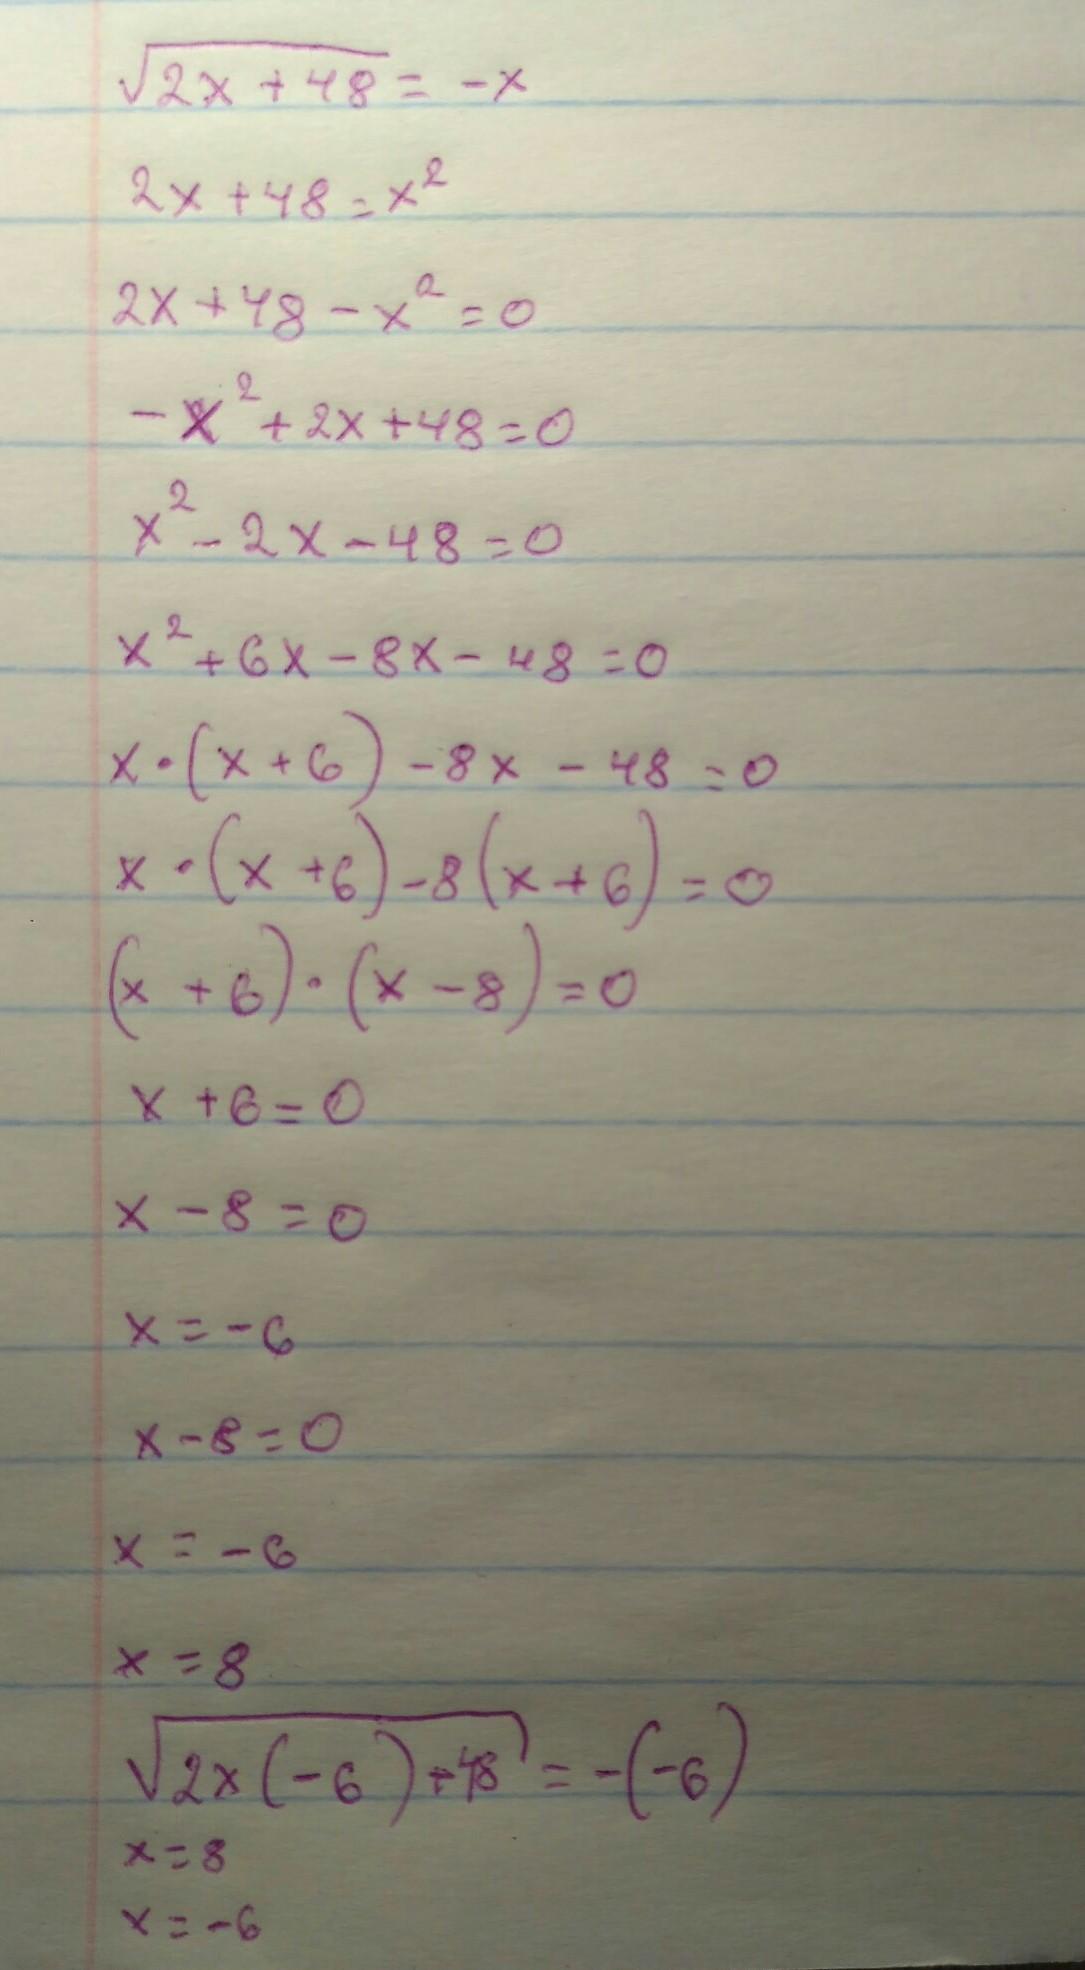 √2x + 48 = -x
2x + 48 = x²
2x + 48 - x² = 0
-x² + 2x + 48 = 0
x² - 2x - 48 = 0
x² + 6x - 8x - 48 = 0
x · (x + 6) - 8x - 48 = 0
x · (x + 6) - 8 (x + 6) = 0
(x + 6) · (x - 8) = 0
x + 6 = 0
x - 8 = 0
x = -6
x - 8 = 0
x = -6
x = 8
√2x(-6) + 48 = -(-6)
x = 8
x = -6